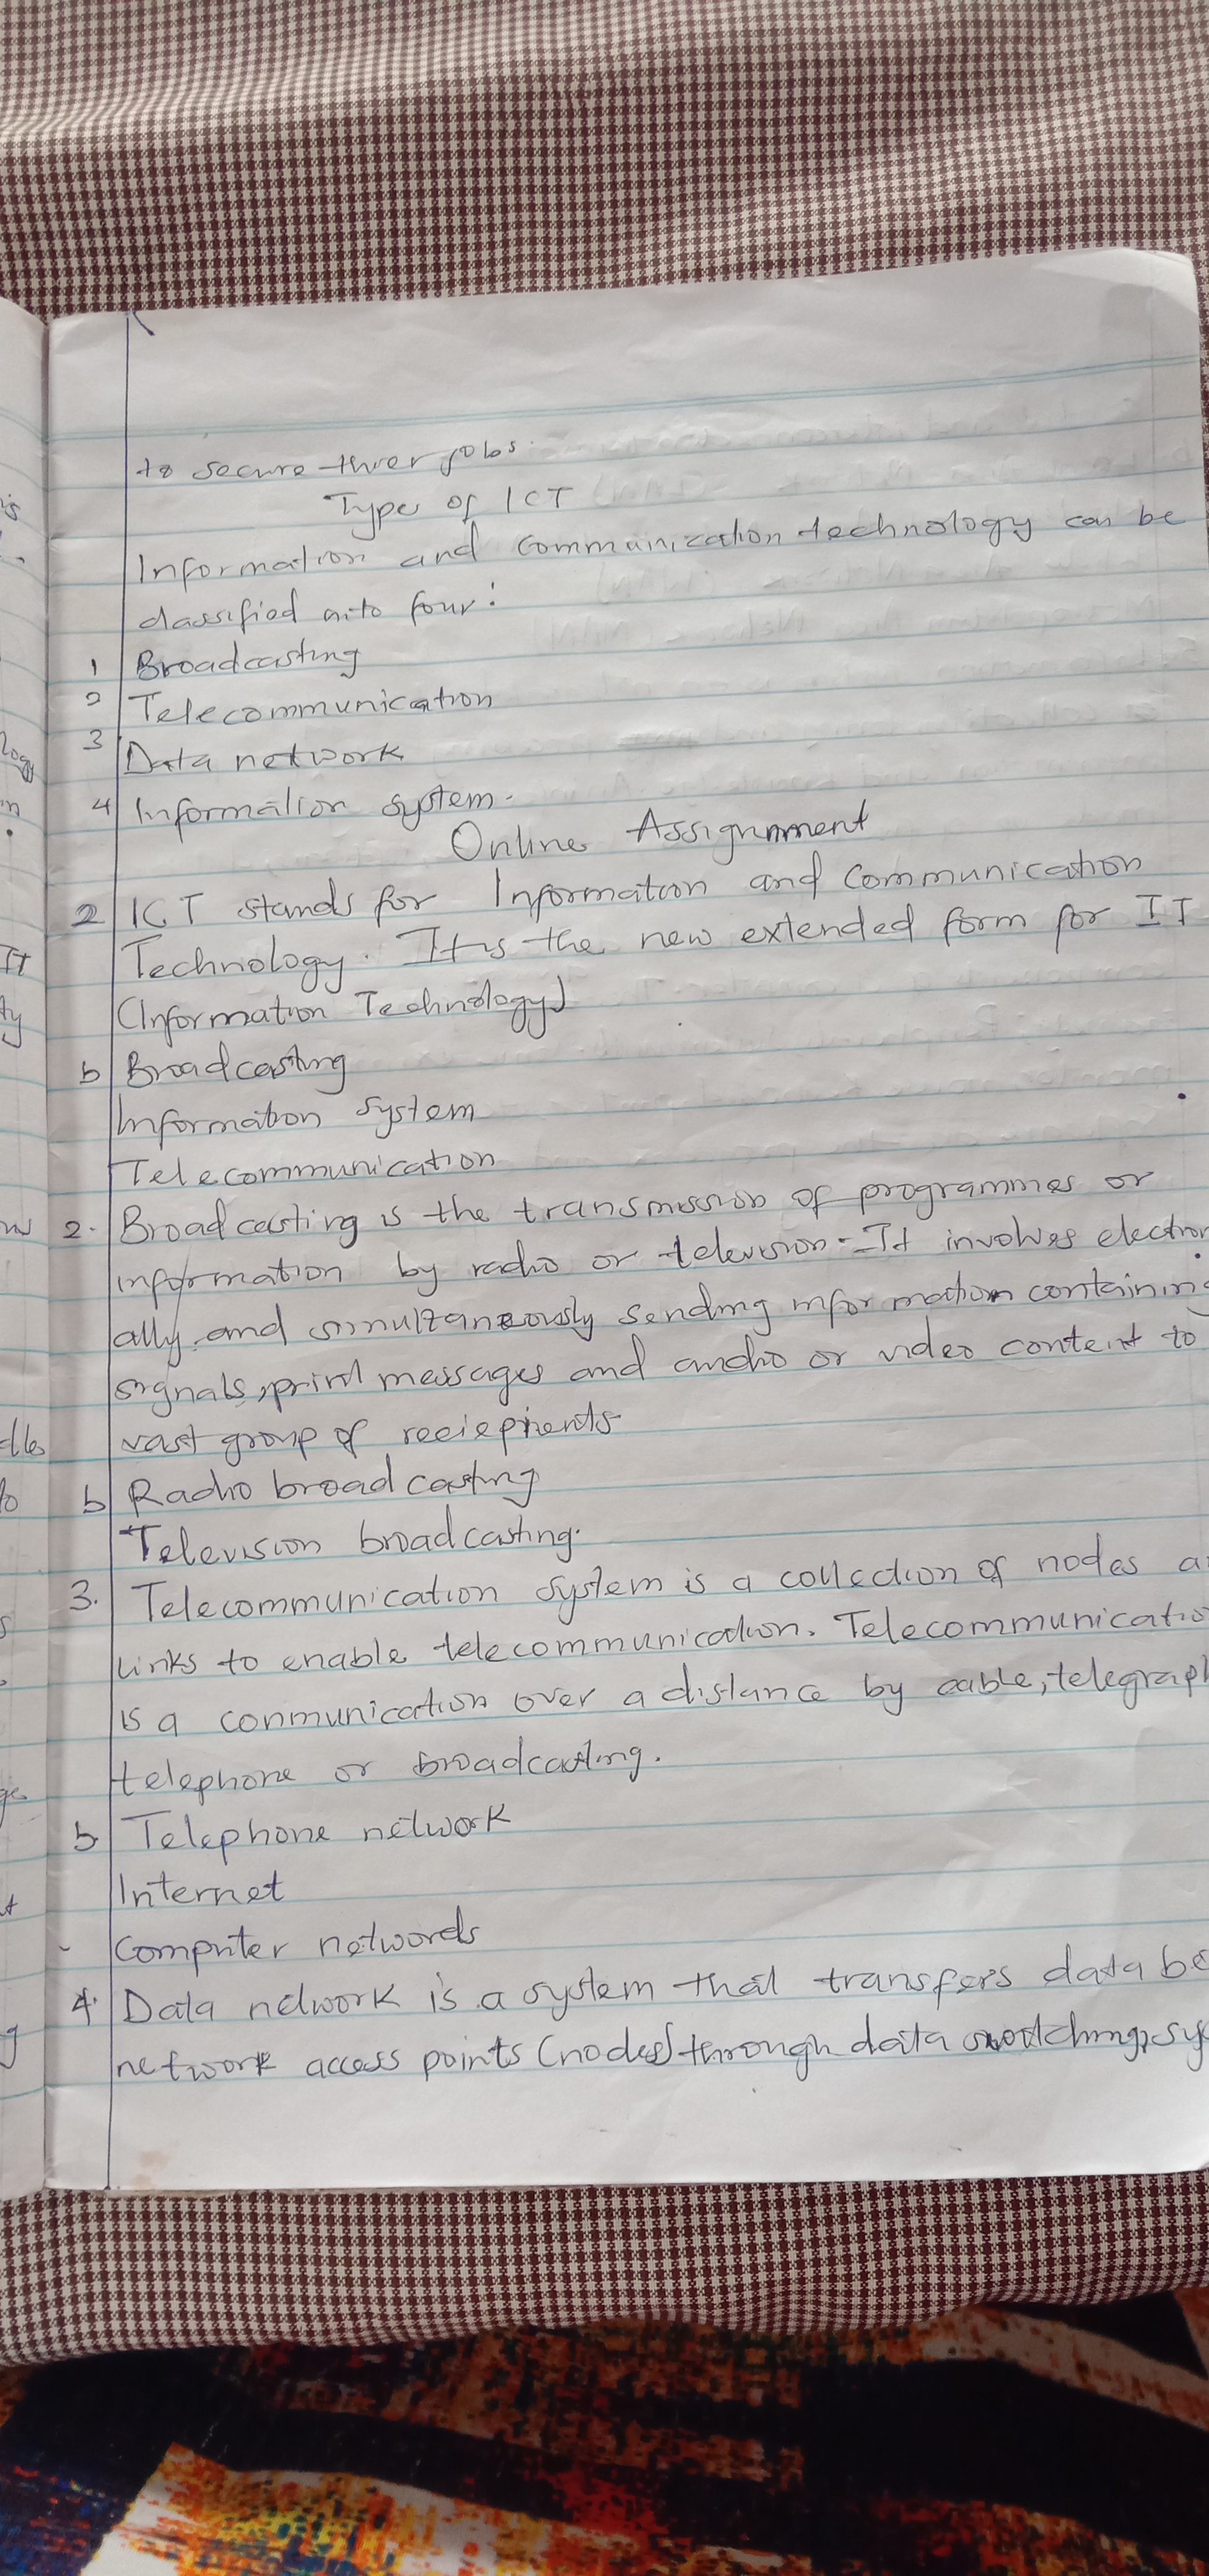 to secure thier jobs.
Type of ICT
Information and communication technology can be
classified into four:
1 Broadcasting
2 Telecommunication
3 Data network
4 Information system.
Online Assignment
2 ICT stands for Information and Communication
Technology. It is the new extended form for IT
(Information Technology)
b Broadcasting
Information system
Telecommunication
2. Broadcasting is the transmission of programmes or
information by radio or television. It involves electron
ally and simultaneously sending information containing
signals, print messages and audio or video content to
vast group of reciepients
b Radio broadcasting
Television broadcasting.
3. Telecommunication system is a collection of nodes a
links to enable telecommunication. Telecommunicatio
is a conmunication over a distance by cable, telegraph
telephone or broadcasting.
b Telephone network
Internet
- Computer networds
4. Data network is a system that transfers data be
network access points (nodes) through data switching, sy